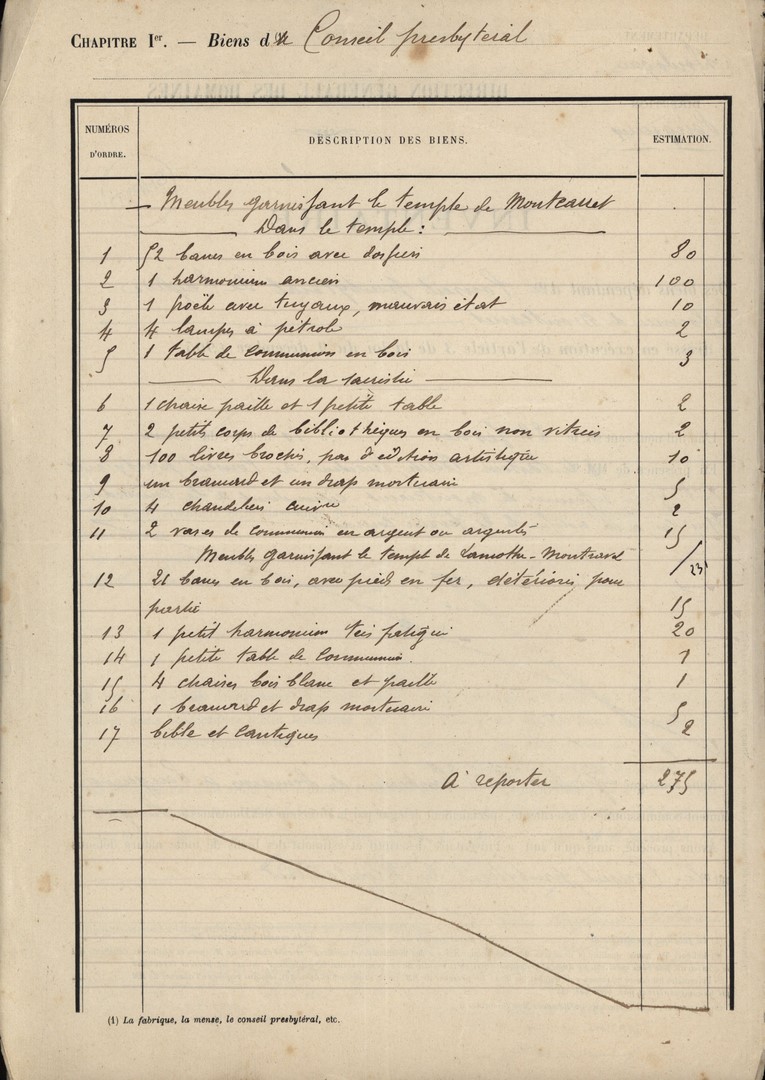 CHAPITRE Ier. — Biens du Conseil presbytéral
NUMÉROS D'ORDRE. DESCRIPTION DES BIENS. ESTIMATION.
— Meubles garnissant le temple de Montcaret
Dans le temple :
1 52 bancs en bois avec dossiers 80
2 1 harmonium ancien 100
3 1 poële avec tuyaux, mauvais état 10
4 4 lampes à pétrole 2
5 1 table de communion en bois 3
Dans la sacristie
6 1 chaise paille et 1 petite table 2
7 2 petits corps de bibliothèques en bois non vitrés 2
8 100 livres brochés, pas d'édition artistique 10
9 un brancard et un drap mortuaire 5
10 4 chandeliers cuivre 2
11 2 vases de communion en argent ou argentés 15
Meubles garnissant le temple de Lamothe-Montravel / 231
12 21 bancs en bois, avec pieds en fer, détériorés pour
partie 15
13 1 petit harmonium très fatigué 20
14 1 petite table de communion. 1
15 4 chaises bois blanc et paille 1
16 1 brancard et drap mortuaire 5
17 bible et cantiques 2
à reporter 275
(1) La fabrique, la mense, le conseil presbytéral, etc.